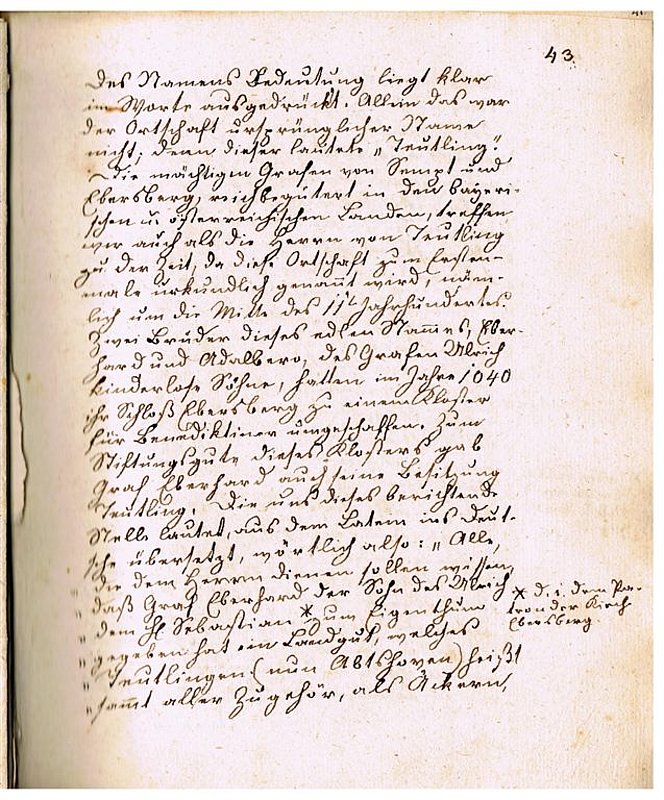 43
des Namens Bedeutung liegt klar
im Worte ausgedrückt. Allein das war
der Ortschaft ursprünglicher Name
nicht; denn dieser lautete „Teutling."
Die mächtigen Grafen von Sempt und
Ebersberg, reichbegütert in den bayeri-
schen u. österreichischen Landen, treffen
wir auch als die Herrn von Teutling
zu der Zeit, da diese Ortschaft zum Ersten-
male urkundlich genannt wird, näm-
lich um die Mitte des 11t Jahrhundertes.
Zwei Brüder dieses edlen Stammes, Eber-
hard und Adalbero, des Grafen Ulrich
kinderlose Söhne, hatten im Jahre 1040
ihr Schloß Ebersberg zu einem Kloster
für Benediktiner umgeschaffen. Zum
Stiftungsgute dieses Klosters gab
Graf Eberhard auch seine Besitzung
Teutling. Die uns dieses berichtende
Stelle lautet, aus dem Latein ins Deut-
sche übersetzt, wörtlich also: „Alle,
„ die dem Herrn dienen sollen wissen,
„ daß Graf Eberhard der Sohn des Ulrich
„ dem hl. Sebastian * zum Eigenthum
„ gegeben hat ein Landgut, welches
„ Teutlingen (nun Abtshoven) heißt
„ sammt aller Zugehör, als Äckern,
* d. i. dem Pa-
tron der Kirch
Ebersberg.